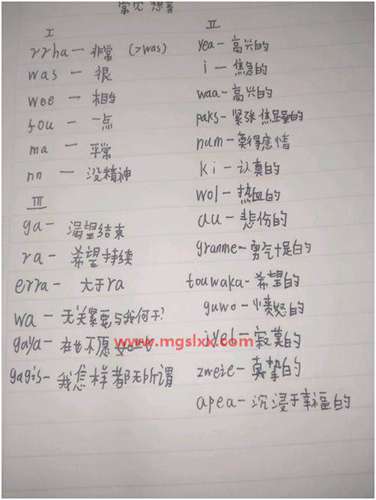 常见想音
I
rrha — 非常 (>was)
was — 很
wee — 相当
fou — 一点
ma — 平常
nn — 没精神
III
ga — 渴望结束
ra — 希望持续
erra — 大于ra
wa — 无关紧要与我何干?
gaya — 在也不愿
gagis — 我怎样都无所谓
II
yea — 高兴的
i — 焦急的
waa — 高兴的
paks — 紧张焦虑的
num — 莫得感情
ki — 认真的
wol — 热血的
au — 悲伤的
granme — 勇气十足的
touwaka — 希望的
guwo — 愤怒的
iyel — 寂寞的
zweie — 真挚的
apea — 沉浸于幸福的
www.mgslxx.com